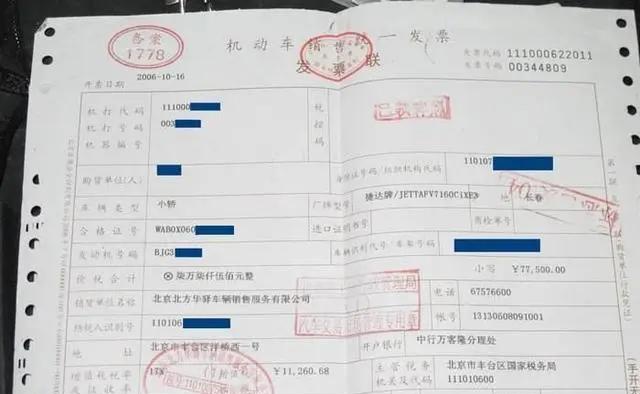 备案
1778
机动车销售统一发票
发票联
发票代码 111000622011
发票号码 00344809
开票日期 2006-10-16
机打代码 111000
机打号码 003
机器编号
税控码
购货单位(人)
身份证号码/组织机构代码 110107
车辆类型 小轿
厂牌型号 捷达牌/JETTAFV7160CiXE3
产地 长春
合格证号 WAB0X060
进口证明书号
商检单号
发动机号码 BJG3
车辆识别代号/车架号码
价税合计 ⊗柒万柒仟伍佰元整
小写 ¥77,500.00
销货单位名称 北京北方华驿车辆销售服务有限公司
电话 67576600
纳税人识别号 110106
帐号 13130608091001
地址 北京市丰台区洋桥西一号
开户银行 中行万客隆分理处
增值税税率 17%
增值税
¥11,260.68
主管税务机关及代码 北京市丰台区国家税务局
111010600